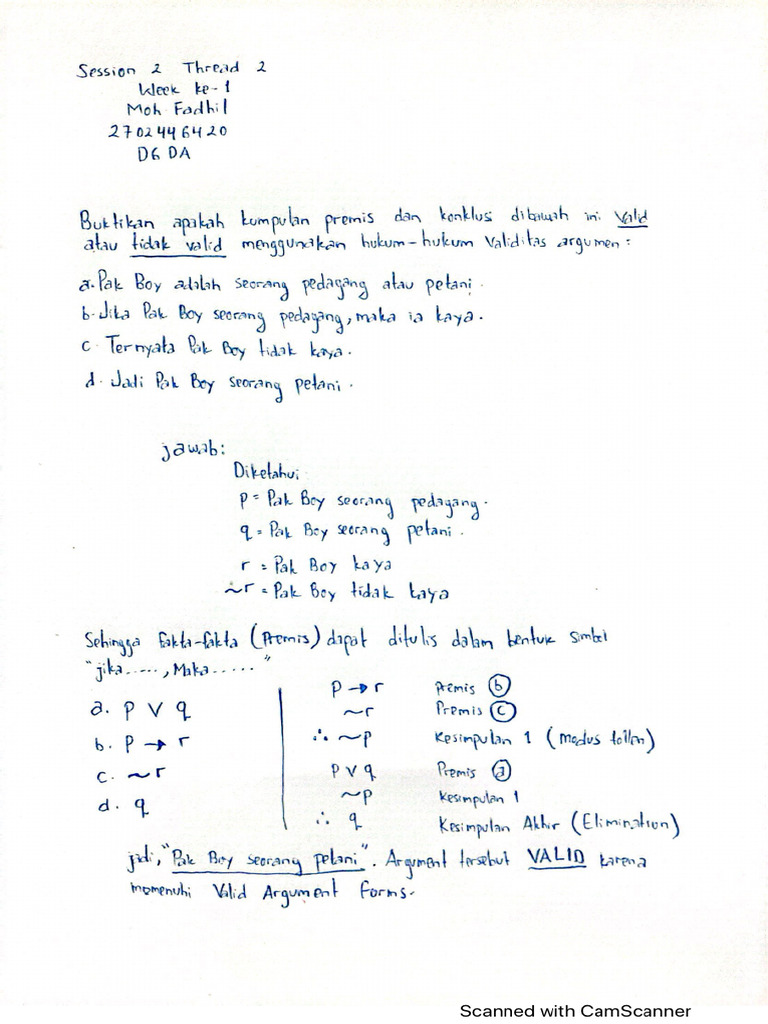 Session 2 Thread 2
Week ke-1
Moh Fadhil
2702446420
D6 DA
Buktikan apakah kumpulan premis dan konklusi dibawah ini Valid
atau tidak valid menggunakan hukum-hukum Validitas argumen :
a. Pak Boy adalah seorang pedagang atau petani.
b. Jika Pak Boy seorang pedagang, maka ia kaya.
c. Ternyata Pak Boy tidak kaya.
d. Jadi Pak Boy seorang petani.
jawab:
Diketahui
p = Pak Boy seorang pedagang.
q = Pak Boy seorang petani.
r = Pak Boy kaya
~r = Pak Boy tidak kaya
Sehingga fakta-fakta (Premis) dapat ditulis dalam bentuk simbol
"jika ....., Maka ......"
a. p ∨ q
b. p → r
c. ~r
d. q
p → r Premis b
~r Premis c
∴ ~p Kesimpulan 1 (modus tollen)
p ∨ q Premis a
~p Kesimpulan 1
∴ q Kesimpulan Akhir (Elimination)
jadi, "Pak Boy seorang petani". Argument tersebut VALID karena
memenuhi Valid Argument forms.
Scanned with CamScanner